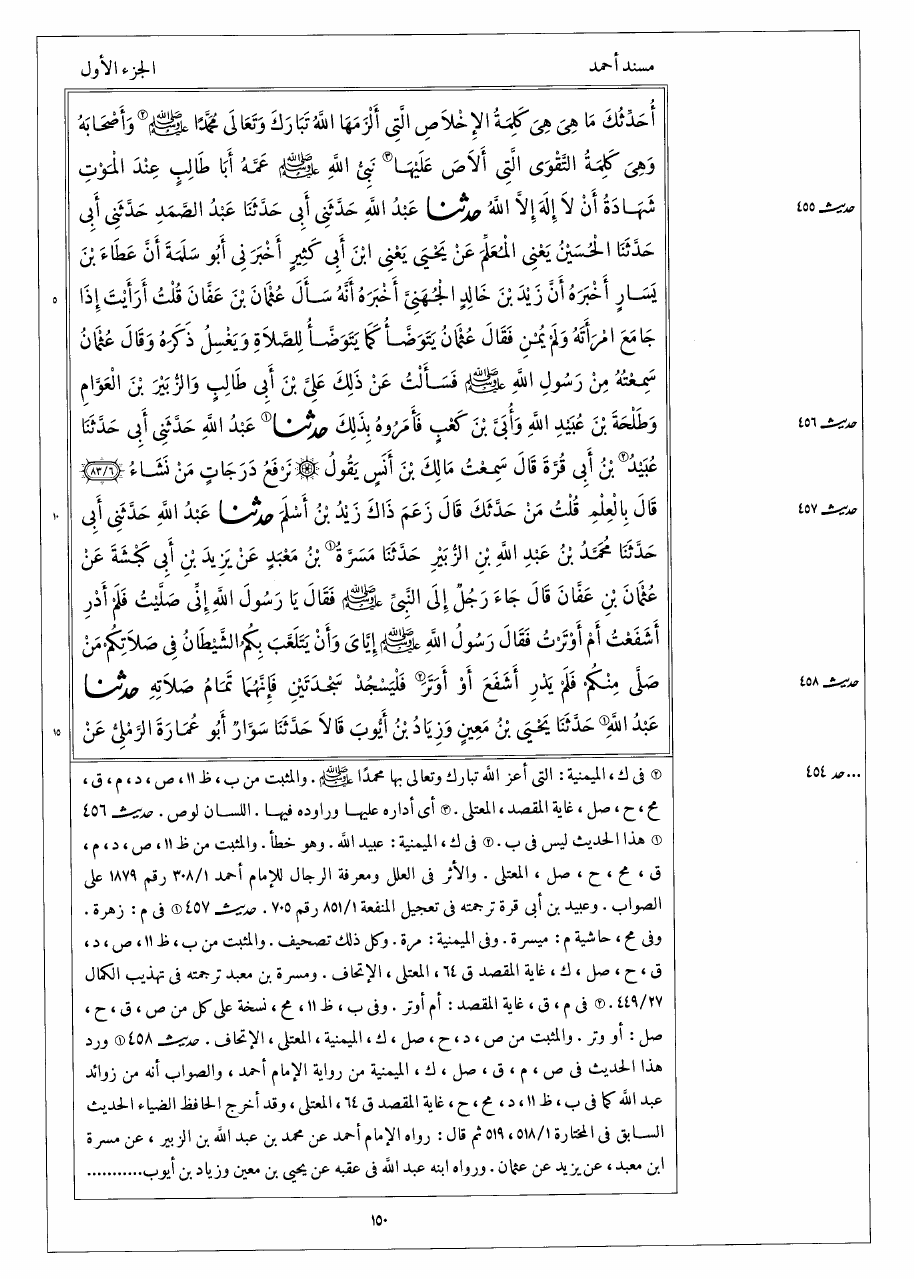 مسند أحمد
الجزء الأول
أُحَدِّثُكَ مَا هِىَ هِىَ كَلِمَةُ الإِخْلاَصِ الَّتِى أَلْزَمَهَا اللَّهُ تَبَارَكَ وَتَعَالَى مُحَمَّدًا ﷺ② وَأَصْحَابَهُ
وَهِىَ كَلِمَةُ التَّقْوَى الَّتِى أَلاَصَ عَلَيْهَا③ نَبِىُّ اللَّهِ ﷺ عَمَّهُ أَبَا طَالِبٍ عِنْدَ الْمَوْتِ
شَهَادَةُ أَنْ لاَ إِلَهَ إِلاَّ اللَّهُ حدثنا عَبْدُ اللَّهِ حَدَّثَنِى أَبِى حَدَّثَنَا عَبْدُ الصَّمَدِ حَدَّثَنِى أَبِى
حديث ٤٥٥
حَدَّثَنَا الْحُسَيْنُ يَعْنِى الْمُعَلِّمَ عَنْ يَحْيَى يَعْنِى ابْنَ أَبِى كَثِيرٍ أَخْبَرَنِى أَبُو سَلَمَةَ أَنَّ عَطَاءَ بْنَ
يَسَارٍ أَخْبَرَهُ أَنَّ زَيْدَ بْنَ خَالِدٍ الْجُهَنِىَّ أَخْبَرَهُ أَنَّهُ سَأَلَ عُثْمَانَ بْنَ عَفَّانَ قُلْتُ أَرَأَيْتَ إِذَا
٥
جَامَعَ امْرَأَتَهُ وَلَمْ يُمْنِ فَقَالَ عُثْمَانُ يَتَوَضَّأُ كَمَا يَتَوَضَّأُ لِلصَّلاَةِ وَيَغْسِلُ ذَكَرَهُ وَقَالَ عُثْمَانُ
سَمِعْتُهُ مِنْ رَسُولِ اللَّهِ ﷺ فَسَأَلْتُ عَنْ ذَلِكَ عَلِىَّ بْنَ أَبِى طَالِبٍ وَالزُّبَيْرَ بْنَ الْعَوَّامِ
وَطَلْحَةَ بْنَ عُبَيْدِ اللَّهِ وَأُبَىَّ بْنَ كَعْبٍ فَأَمَرُوهُ بِذَلِكَ حدثنا① عَبْدُ اللَّهِ حَدَّثَنِى أَبِى حَدَّثَنَا
حديث ٤٥٦
عُبَيْدُ② بْنُ أَبِى قُرَّةَ قَالَ سَمِعْتُ مَالِكَ بْنَ أَنَسٍ يَقُولُ ﴿ نَرْفَعُ دَرَجَاتٍ مَنْ نَشَاءُ ﴾ (٨٣/٦)
قَالَ بِالْعِلْمِ قُلْتُ مَنْ حَدَّثَكَ قَالَ زَعَمَ ذَاكَ زَيْدُ بْنُ أَسْلَمَ حدثنا عَبْدُ اللَّهِ حَدَّثَنِى أَبِى
حديث ٤٥٧
١٠
حَدَّثَنَا مُحَمَّدُ بْنُ عَبْدِ اللَّهِ بْنِ الزُّبَيْرِ حَدَّثَنَا مَسَرَّةُ① بْنُ مَعْبَدٍ عَنْ يَزِيدَ بْنِ أَبِى كَبْشَةَ عَنْ
عُثْمَانَ بْنِ عَفَّانَ قَالَ جَاءَ رَجُلٌ إِلَى النَّبِىِّ ﷺ فَقَالَ يَا رَسُولَ اللَّهِ إِنِّى صَلَّيْتُ فَلَمْ أَدْرِ
أَشَفَعْتُ أَمْ أَوْتَرْتُ فَقَالَ رَسُولُ اللَّهِ ﷺ إِيَّاىَ وَأَنْ يَتَلَعَّبَ بِكُمُ الشَّيْطَانُ فِى صَلاَتِكُمْ مَنْ
صَلَّى مِنْكُمْ فَلَمْ يَدْرِ أَشَفَعَ أَوْ أَوْتَرَ② فَلْيَسْجُدْ سَجْدَتَيْنِ فَإِنَّهُمَا تَمَامُ صَلاَتِهِ حدثنا
حديث ٤٥٨
عَبْدُ اللَّهِ① حَدَّثَنَا يَحْيَى بْنُ مَعِينٍ وَزِيَادُ بْنُ أَيُّوبَ قَالاَ حَدَّثَنَا سَوَّارٌ أَبُو عُمَارَةَ الرَّمْلِىُّ عَنْ
١٥
② فى ك ، الميمنية : التى أعز الله تبارك وتعالى بها محمدًا ﷺ . والمثبت من ب ، ظ ١١ ، ص ، د ، م ، ق ،
... حد ٤٥٤
مح ، ح ، صل ، غاية المقصد ، المعتلى . ③ أى أداره عليها وراوده فيها . اللسان لوص . حديث ٤٥٦
① هذا الحديث ليس فى ب . ② فى ك ، الميمنية : عبيد الله . وهو خطأ . والمثبت من ظ ١١ ، ص ، د ، م ،
ق ، مح ، ح ، صل ، المعتلى . والأثر فى العلل ومعرفة الرجال للإمام أحمد ٣٠٨/١ رقم ١٨٧٩ على
الصواب . وعبيد بن أبى قرة ترجمته فى تعجيل المنفعة ٨٥١/١ رقم ٧٠٥ . حديث ٤٥٧ ① فى م : زهرة .
وفى مح ، حاشية م : ميسرة . وفى الميمنية : مرة . وكل ذلك تصحيف . والمثبت من ب ، ظ ١١ ، ص ، د ،
ق ، ح ، صل ، ك ، غاية المقصد ق ٦٤ ، المعتلى ، الإتحاف . ومسرة بن معبد ترجمته فى تهذيب الكمال
٤٤٩/٢٧ . ② فى م ، ق ، غاية المقصد : أم أوتر . وفى ب ، ظ ١١ ، مح ، نسخة على كل من ص ، ق ، ح ،
صل : أو وتر . والمثبت من ص ، د ، ح ، صل ، ك ، الميمنية ، المعتلى ، الإتحاف . حديث ٤٥٨ ① ورد
هذا الحديث فى ص ، م ، ق ، صل ، ك ، الميمنية من رواية الإمام أحمد ، والصواب أنه من زوائد
عبد الله كما فى ب ، ظ ١١ ، د ، مح ، ح ، غاية المقصد ق ٦٤ ، المعتلى ، وقد أخرج الحافظ الضياء الحديث
السابق فى المختارة ٥١٨/١ ، ٥١٩ ثم قال : رواه الإمام أحمد عن محمد بن عبد الله بن الزبير ، عن مسرة
ابن معبد ، عن يزيد عن عثمان . ورواه ابنه عبد الله فى عقبه عن يحيى بن معين وزياد بن أيوب ...........
١٥٠